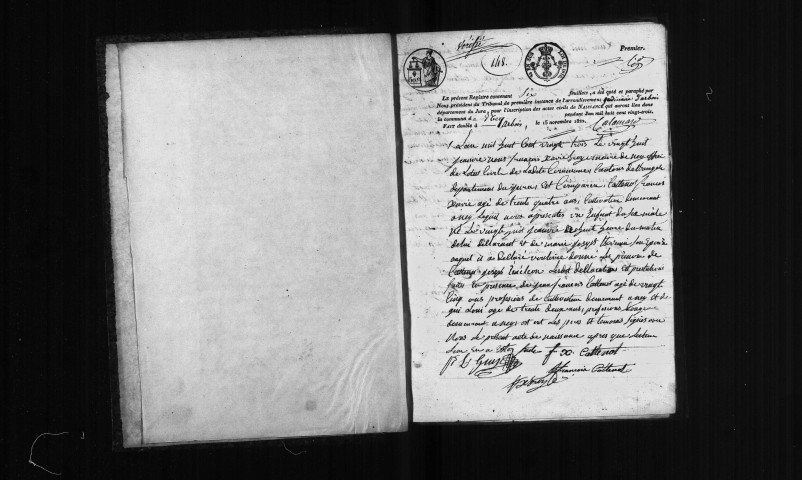 vérifié
148.
Premier.
Le présent Registre contenant Six feuillets, a été coté et paraphé par
Nous président du Tribunal de première instance de l'arrondissement judiciaire d'arbois
département du Jura, pour l'inscription des actes civils de NAISSANCE qui auront lieu dans
la commune de Ney pendant l'an mil huit cent vingt-trois.
FAIT double à arbois, le 15 novembre 1822.
L'an mil huit Cent vingt trois le vingt huit
janvier nous françois Xavier maire de ney officier
de Létat Civile de Ladite Commune Canton de
departement du jura est Comparu Cattenot francois
xavier agé de trente quatre ans Cultivateur demeurant
a ney Lequel nous a presenté un Enfant du sexe male
né Le vingt janvier a huit heure du matin
de lui declarant et de marie josephe son Epouse
auquel il a declaré vouloire donné Le prenom de
Cattenot joseph Lesdit declaration et presentation
faites En presence de jean francois Cattenot agé de vingt
Cinq ans profession de Cultivateur demeurant a ney et de
agé de trente deux ans, profession
demeurant a ney et ont Les pere et temoins signés avec
Nous Le présent acte de naissance apres que Lecture
Leur En a Etté faite f. x. Cattenot
francois Cattenot